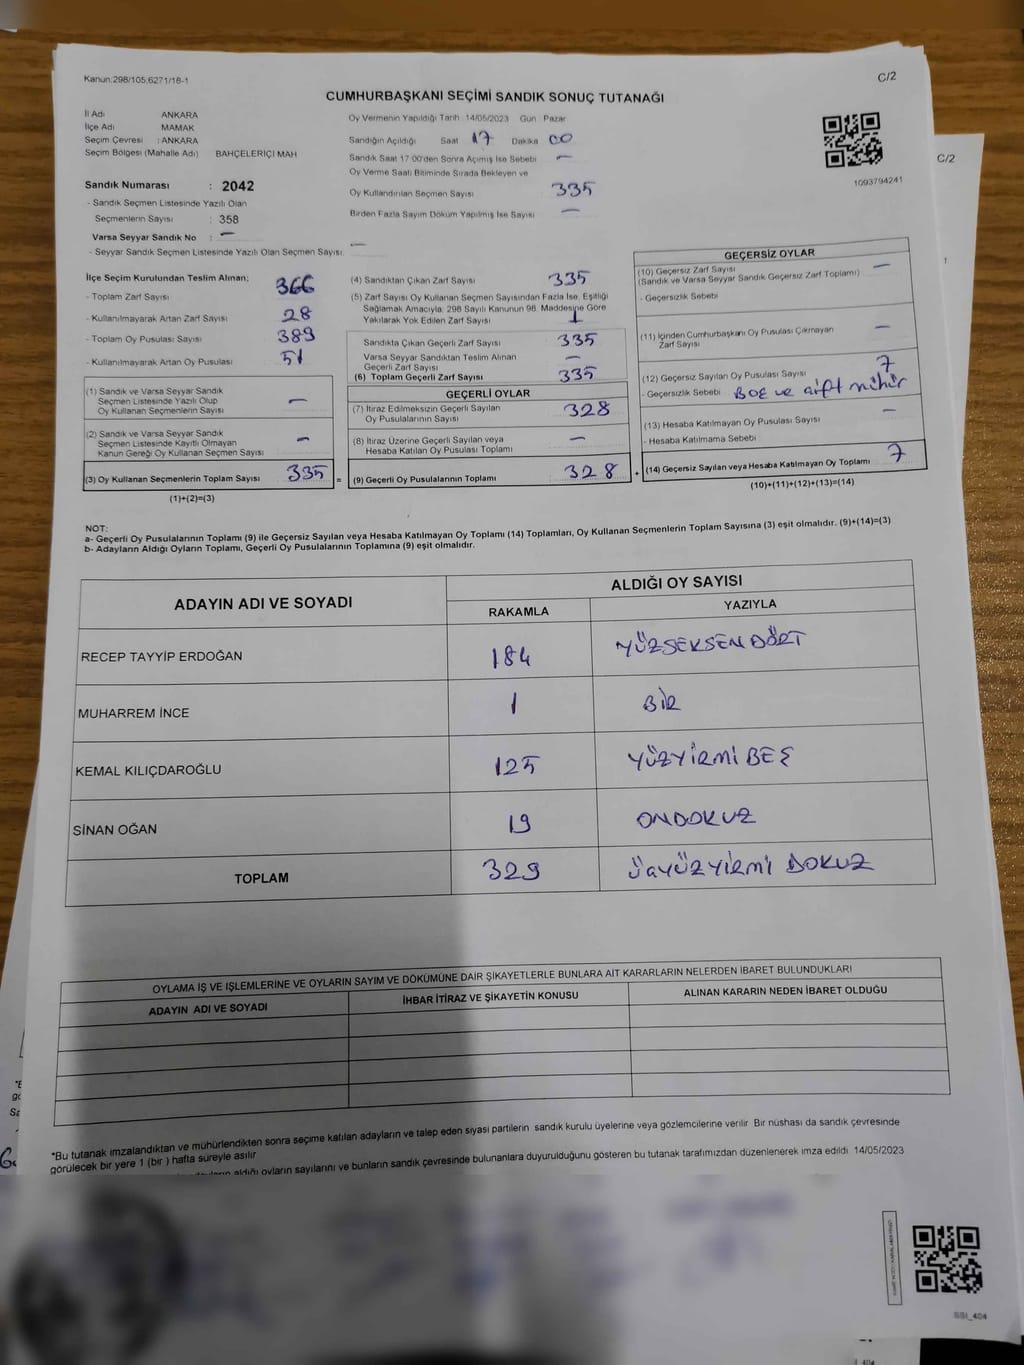 Kanun:298/105,6271/18-1
C/2
CUMHURBAŞKANI SEÇİMİ SANDIK SONUÇ TUTANAĞI
İl Adı ANKARA
İlçe Adı MAMAK
Seçim Çevresi : ANKARA
Seçim Bölgesi (Mahalle Adı) BAHÇELERİÇİ MAH
Sandık Numarası : 2042
- Sandık Seçmen Listesinde Yazılı Olan
Seçmenlerin Sayısı : 358
Varsa Seyyar Sandık No : –
- Seyyar Sandık Seçmen Listesinde Yazılı Olan Seçmen Sayısı: –
Oy Vermenin Yapıldığı Tarih 14/05/2023 Gün Pazar
Sandığın Açıldığı Saat 17 Dakika 00
Sandık Saat 17 00'den Sonra Açımış İse Sebebi –
Oy Verme Saati Bitiminde Sırada Bekleyen ve
Oy Kullandırılan Seçmen Sayısı 335
Birden Fazla Sayım Döküm Yapılmış İse Sayısı –
1093794241
C/2
İlçe Seçim Kurulundan Teslim Alınan;
- Toplam Zarf Sayısı 366
- Kullanılmayarak Artan Zarf Sayısı 28
- Toplam Oy Pusulası Sayısı 389
- Kullanılmayarak Artan Oy Pusulası 51
(1) Sandık ve Varsa Seyyar Sandık
Seçmen Listesinde Yazılı Olup
Oy Kullanan Seçmenlerin Sayısı –
(2) Sandık ve Varsa Seyyar Sandık
Seçmen Listesinde Kayıtlı Olmayan
Kanun Gereği Oy Kullanan Seçmen Sayısı –
(3) Oy Kullanan Seçmenlerin Toplam Sayısı 335 =
(1)+(2)=(3)
(4) Sandıktan Çıkan Zarf Sayısı 335
(5) Zarf Sayısı Oy Kullanan Seçmen Sayısından Fazla İse, Eşitliği
Sağlamak Amacıyla, 298 Sayılı Kanunun 98. Maddesine Göre
Yakılarak Yok Edilen Zarf Sayısı 1
Sandıkta Çıkan Geçerli Zarf Sayısı 335
Varsa Seyyar Sandıktan Teslim Alınan
Geçerli Zarf Sayısı –
(6) Toplam Geçerli Zarf Sayısı 335
GEÇERLİ OYLAR
(7) İtiraz Edilmeksizin Geçerli Sayılan
Oy Pusulalarının Sayısı 328
(8) İtiraz Üzerine Geçerli Sayılan veya
Hesaba Katılan Oy Pusulası Toplamı –
(9) Geçerli Oy Pusulalarının Toplamı 328 +
GEÇERSİZ OYLAR
(10) Geçersiz Zarf Sayısı –
(Sandık ve Varsa Seyyar Sandık Geçersiz Zarf Toplamı)
- Geçersizlik Sebebi
(11) İçinden Cumhurbaşkanı Oy Pusulası Çıkmayan
Zarf Sayısı –
(12) Geçersiz Sayılan Oy Pusulası Sayısı 7
- Geçersizlik Sebebi BOŞ ve çift mühür
(13) Hesaba Katılmayan Oy Pusulası Sayısı –
- Hesaba Katılmama Sebebi
(14) Geçersiz Sayılan veya Hesaba Katılmayan Oy Toplamı 7
(10)+(11)+(12)+(13)=(14)
NOT:
a- Geçerli Oy Pusulalarının Toplamı (9) ile Geçersiz Sayılan veya Hesaba Katılmayan Oy Toplamı (14) Toplamları, Oy Kullanan Seçmenlerin Toplam Sayısına (3) eşit olmalıdır. (9)+(14)=(3)
b- Adayların Aldığı Oyların Toplamı, Geçerli Oy Pusulalarının Toplamına (9) eşit olmalıdır.
ADAYIN ADI VE SOYADI
ALDIĞI OY SAYISI
RAKAMLA YAZIYLA
RECEP TAYYİP ERDOĞAN 184 YÜZSEKSENDÖRT
MUHARREM İNCE 1 BİR
KEMAL KILIÇDAROĞLU 125 YÜZYİRMİ BEŞ
SİNAN OĞAN 19 ONDOKUZ
TOPLAM 329 ÜÇYÜZYİRMİ DOKUZ
OYLAMA İŞ VE İŞLEMLERİNE VE OYLARIN SAYIM VE DÖKÜMÜNE DAİR ŞİKAYETLERLE BUNLARA AİT KARARLARIN NELERDEN İBARET BULUNDUKLARI
ADAYIN ADI VE SOYADI İHBAR İTİRAZ VE ŞİKAYETİN KONUSU ALINAN KARARIN NEDEN İBARET OLDUĞU
*Bu tutanak imzalandıktan ve mühürlendikten sonra seçime katılan adayların ve talep eden siyasi partilerin sandık kurulu üyelerine veya gözlemcilerine verilir Bir nüshası da sandık çevresinde
görülecek bir yere 1 (bir ) hafta süreyle asılır
aldığı oyların sayılarını ve bunların sandık çevresinde bulunanlara duyurulduğunu gösteren bu tutanak tarafımızdan düzenlenerek imza edildi 14/05/2023
SSI_404